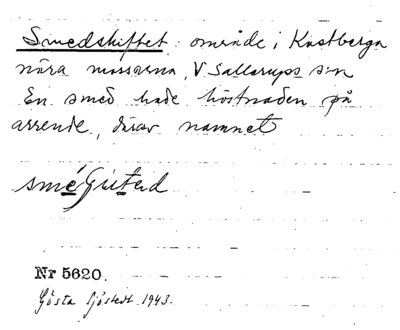 Smedskiftet: område i Kastberga
nära mossarna, V Sallerups sn
En smed hade höstnaden på
arrende, därav namnet
smé
Nr 5620.
Gösta Sjöstedt 1943.